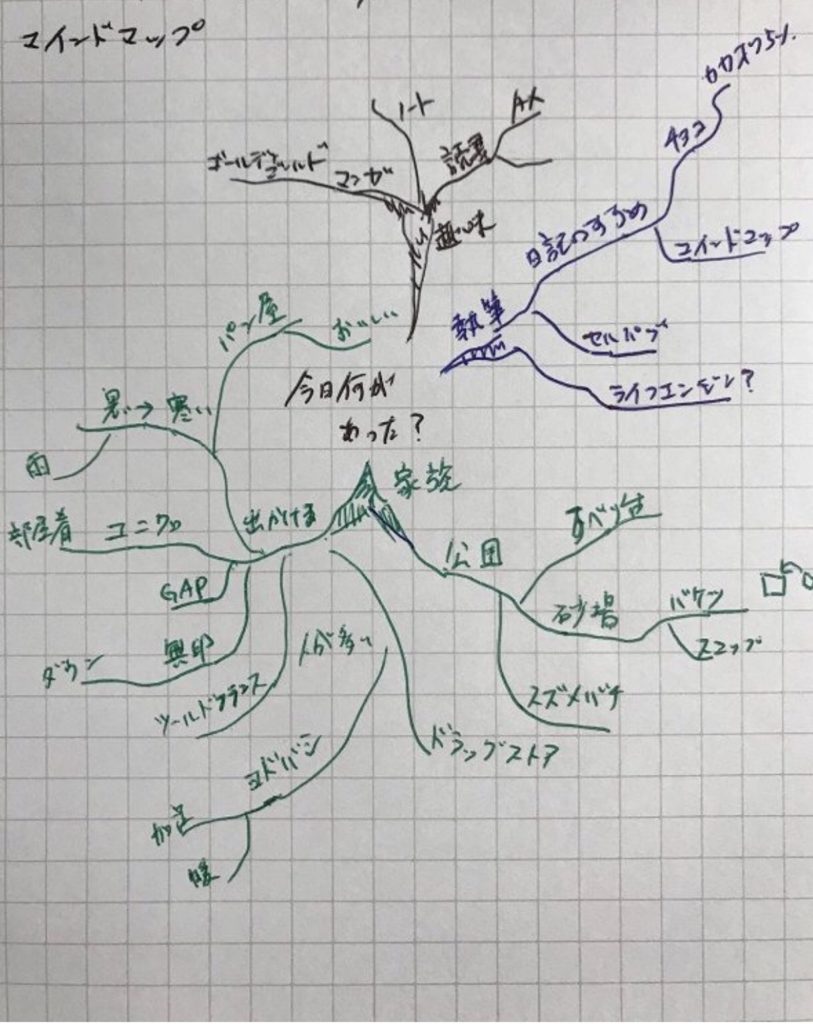 マインドマップ
ノート
ゴールデンゴールド
マンガ
読書
趣味
日記のすすめ
チョコ
マインドマップ
執筆
セルパブ
ライフエンジン？
パン屋
おいしい
今日何が
あった？
暑い→寒い
雨
出かける
家族
部屋着
ユニクロ
GAP
無印
ダウン
ツールドフランス
人が多い
ヨドバシ
加湿
暖
ドラッグストア
公園
すべり台
砂場
バケツ
スコップ
スズメバチ